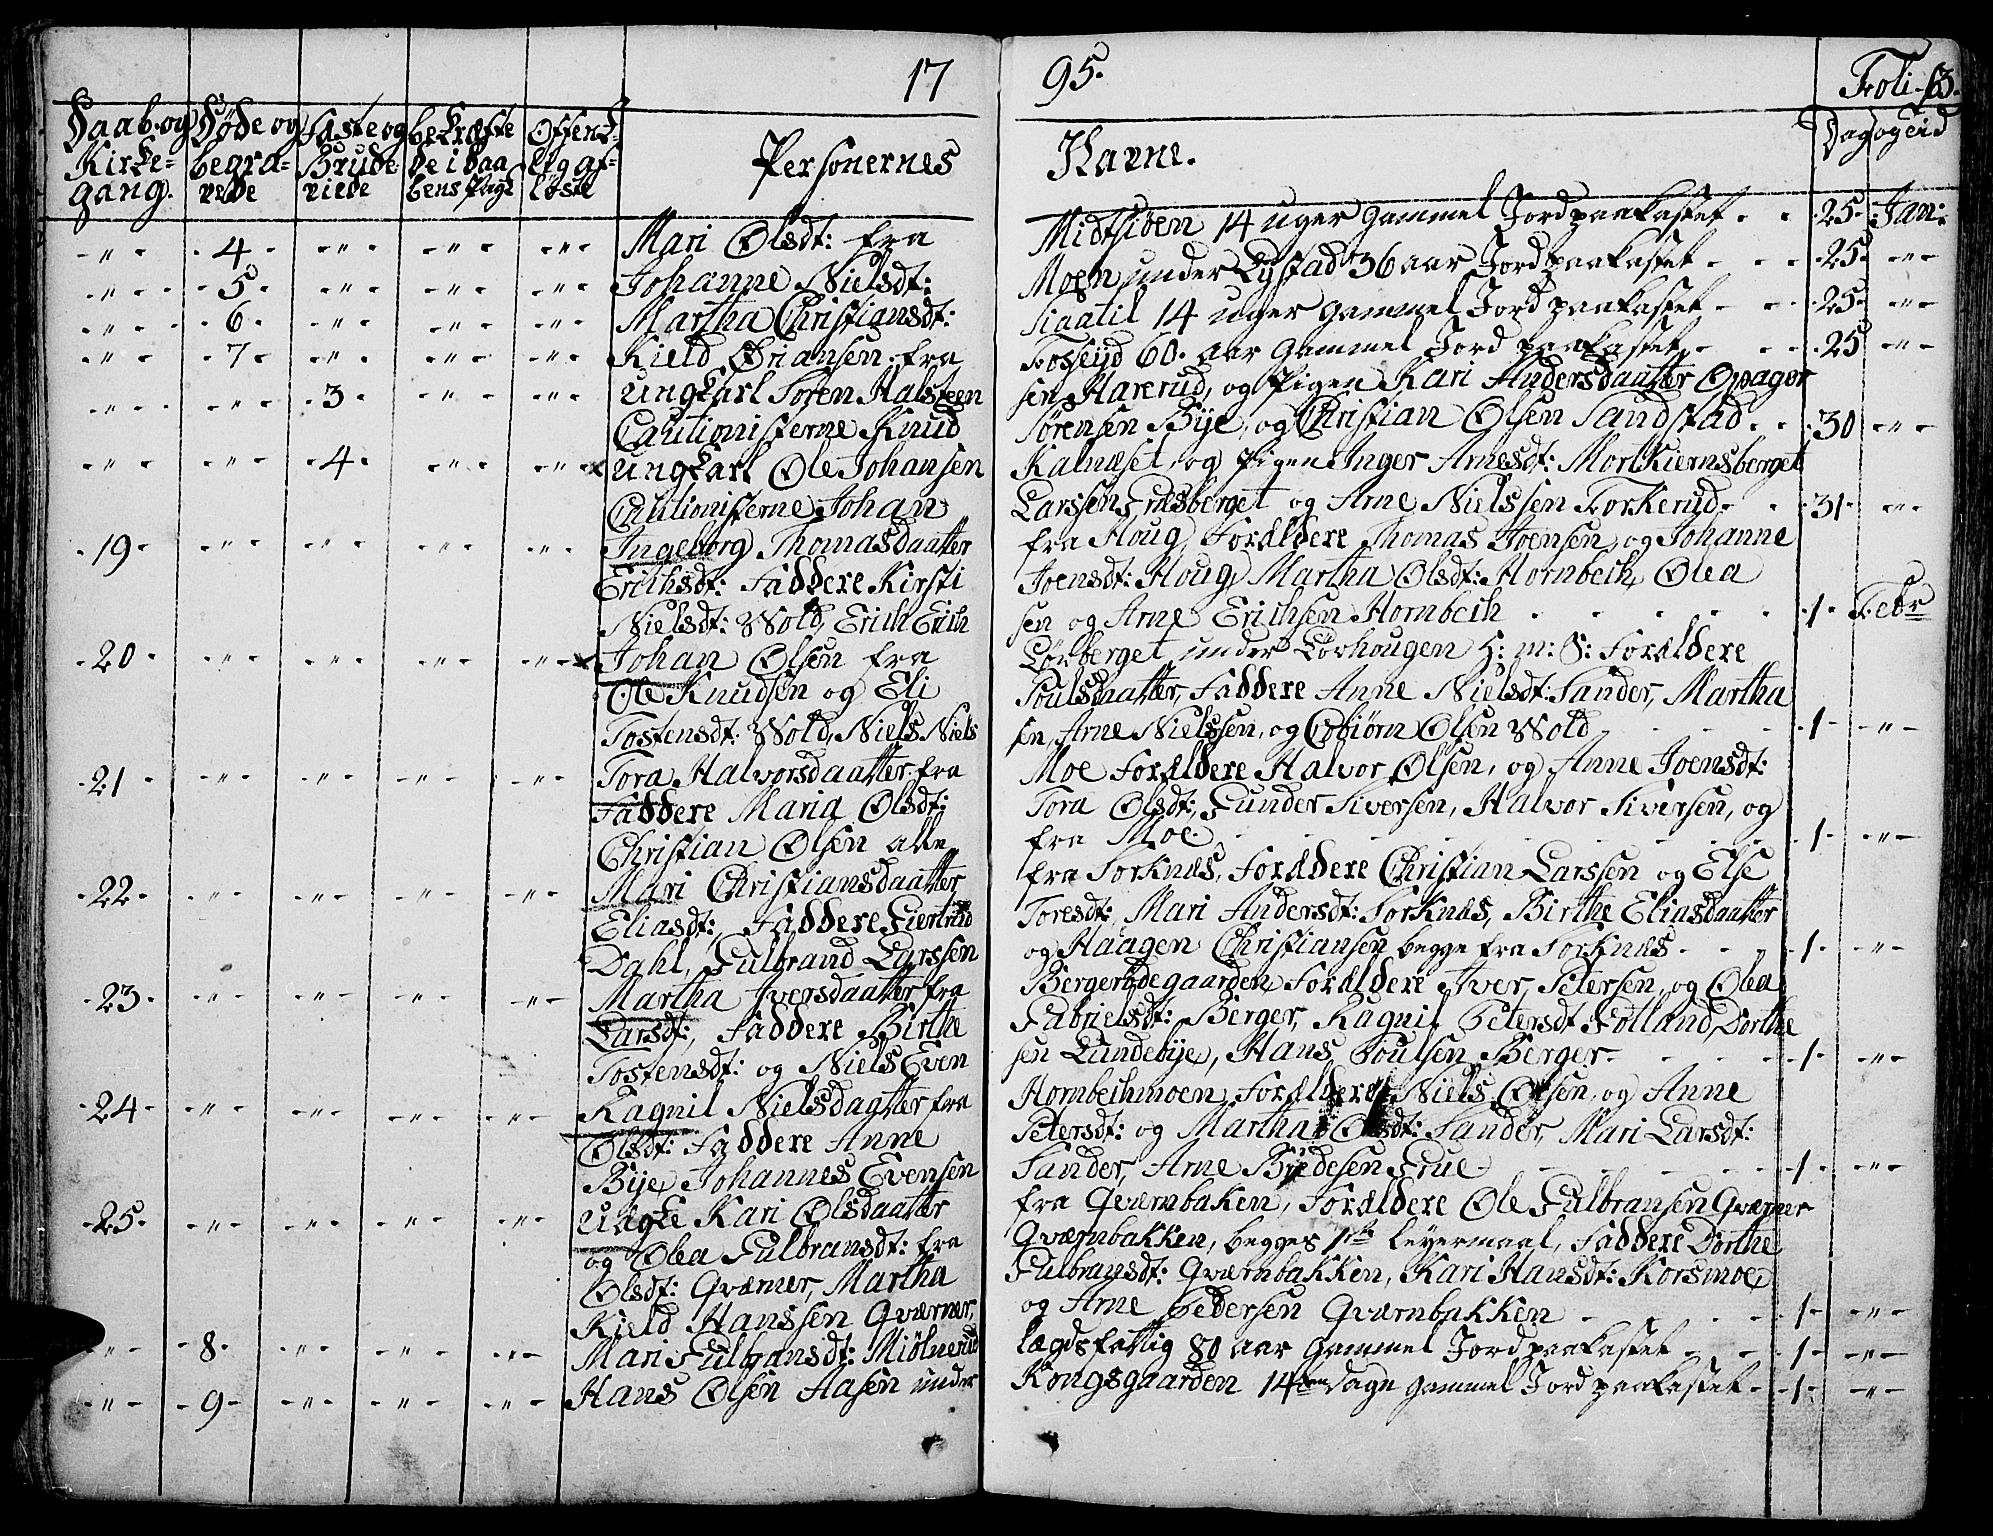 1795. Foli 63.
Daab og Kirke=gang. Døde og begra=vede Fæste og Brude viede bekræfte de i Daabens Pagt Offentlig afløste Personernes Navne. Dag og Tid
4 Mari Olsdt: fra Midtsioen 14 uger gammel Jord paakastet 25 Jan:
5 Johanne Nielsdt: Moen under Lystad 36 aar Jord paakastet 25
6 Martha Christiansdt: 14 uger gammel Jord paakastet 25
7 Kield fra 60. aar gammel Jord paakastet 25
3 Ungkarl Søren Halsteensen Harerud, og Pigen Kari Andersdaatter Opager
Cautionisterne Knud Sørensen Bye, og Christian Olsen Sandstad 30
4 Ungkarl Ole Johansen Kalneset, og Pigen Inger Arnesdt: Mortkiernsberget
Cautionisterne Johan Larssen og Arne Nielssen Torkerud 31
19 Ingeborg Thomasdaatter fra Houg, Forældere Thomas Joensen, og Johanne
Erichsdt: Faddere Kirsti Joensdt: Houg, Martha Olsdt: Hornbech, Olea
Nielsdt: Wold, Erich Erichsen og Arne Erichsen Hornbech 1 Febr
20 Johan Olsen fra Løvberget under Løvhougen H: m: S: Forældere
Ole Knudsen og Eli Poulsdaatter, Faddere Anne Nielsdt: Sander, Martha
Tostensdt: Wold, Niels Nielsen, Arne Nielssen, og Olsen Wold 1
21 Tora Halvorsdaatter fra Moe Forældere Halvor Olsen, og Anne Joensdt:
Faddere Maria Olsdt: Tora Olsdt: Gunder Siversen, Halvor Siversen, og
Christian Olsen alle fra Moe. 1
22 Mari Christiansdaatter fra Sorknæs, Forældere Christian Larssen og Else
Eliasdt:, Faddere Giertrud Toresdt:, Mari Andersdt: Sorknæs, Birthe Eliasdaatter
Dahl, Gulbrand Larssen og Haagen Christiansen begge fra Sorknæs 1
23 Martha Iversdaatter fra Bergerødegaarden, Forældere Iver Petersen, og Olea
Larsdt:, Faddere Birthe Gabrielsdt: Berger, Ragnil Petersdt Dorthe
Tostensdt: og Niels Evensen Lundebye, Hans Poulsen Berger 1
24 Ragnil Nielsdaatter fra Hornbechmoen, Forældere Niels Olsen, og Anne
Olsdt: Faddere Anne Petersdt: og Martha Olsdt: Sander, Mari Larsdt:
Bye, Johannes Evensen Sander, Arne 1
25 Uægte Kari Olsdaatter fra Qværnbaken, Forældere Ole Gulbransen Qværner
og Olea Gulbransdt: fra Qværnbakken, begges 1ste leyermaal, Faddere Dorthe
Olsdt: Qværner, Martha Gulbransdt: Qværnbakken, Kari Hansdt: Korsmoe,
Kield Hanssen Qværner, og Arne Pedersen Qværnbakken 1
8 Mari Gulbransdt: Miølnerud lægdsfattig 80 aar gammel Jord paakastet 1
9 Hans Olsen Aasen under Kongsgaarden 14ten dage gammel Jord paakastet 1